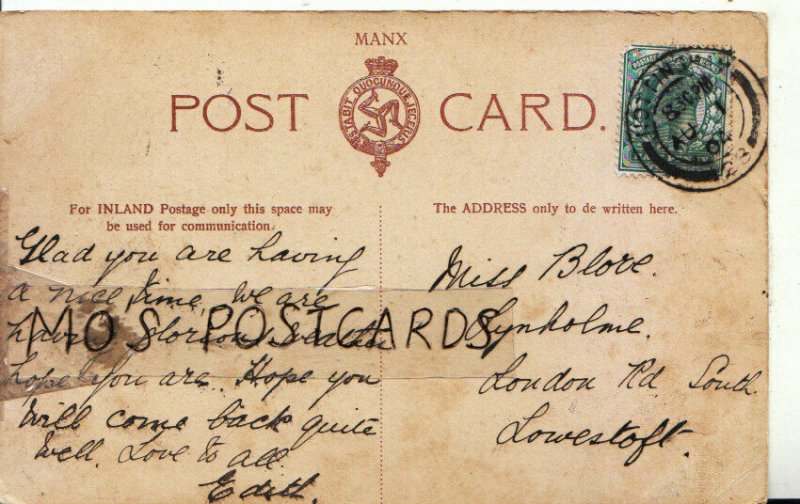 MANX
POST CARD.
STABIT QUOCUNQUE JECERIS
8.30 PM
AU 1
28
For INLAND Postage only this space may
be used for communication.
The ADDRESS only to de written here.
Glad you are having
a nice time, We are
having glorious weather
hope you are. Hope you
will come back quite
well. Love to all.
Edith.
MO'S POSTCARDS
Miss Blore.
Lynholme.
London Rd South.
Lowestoft.